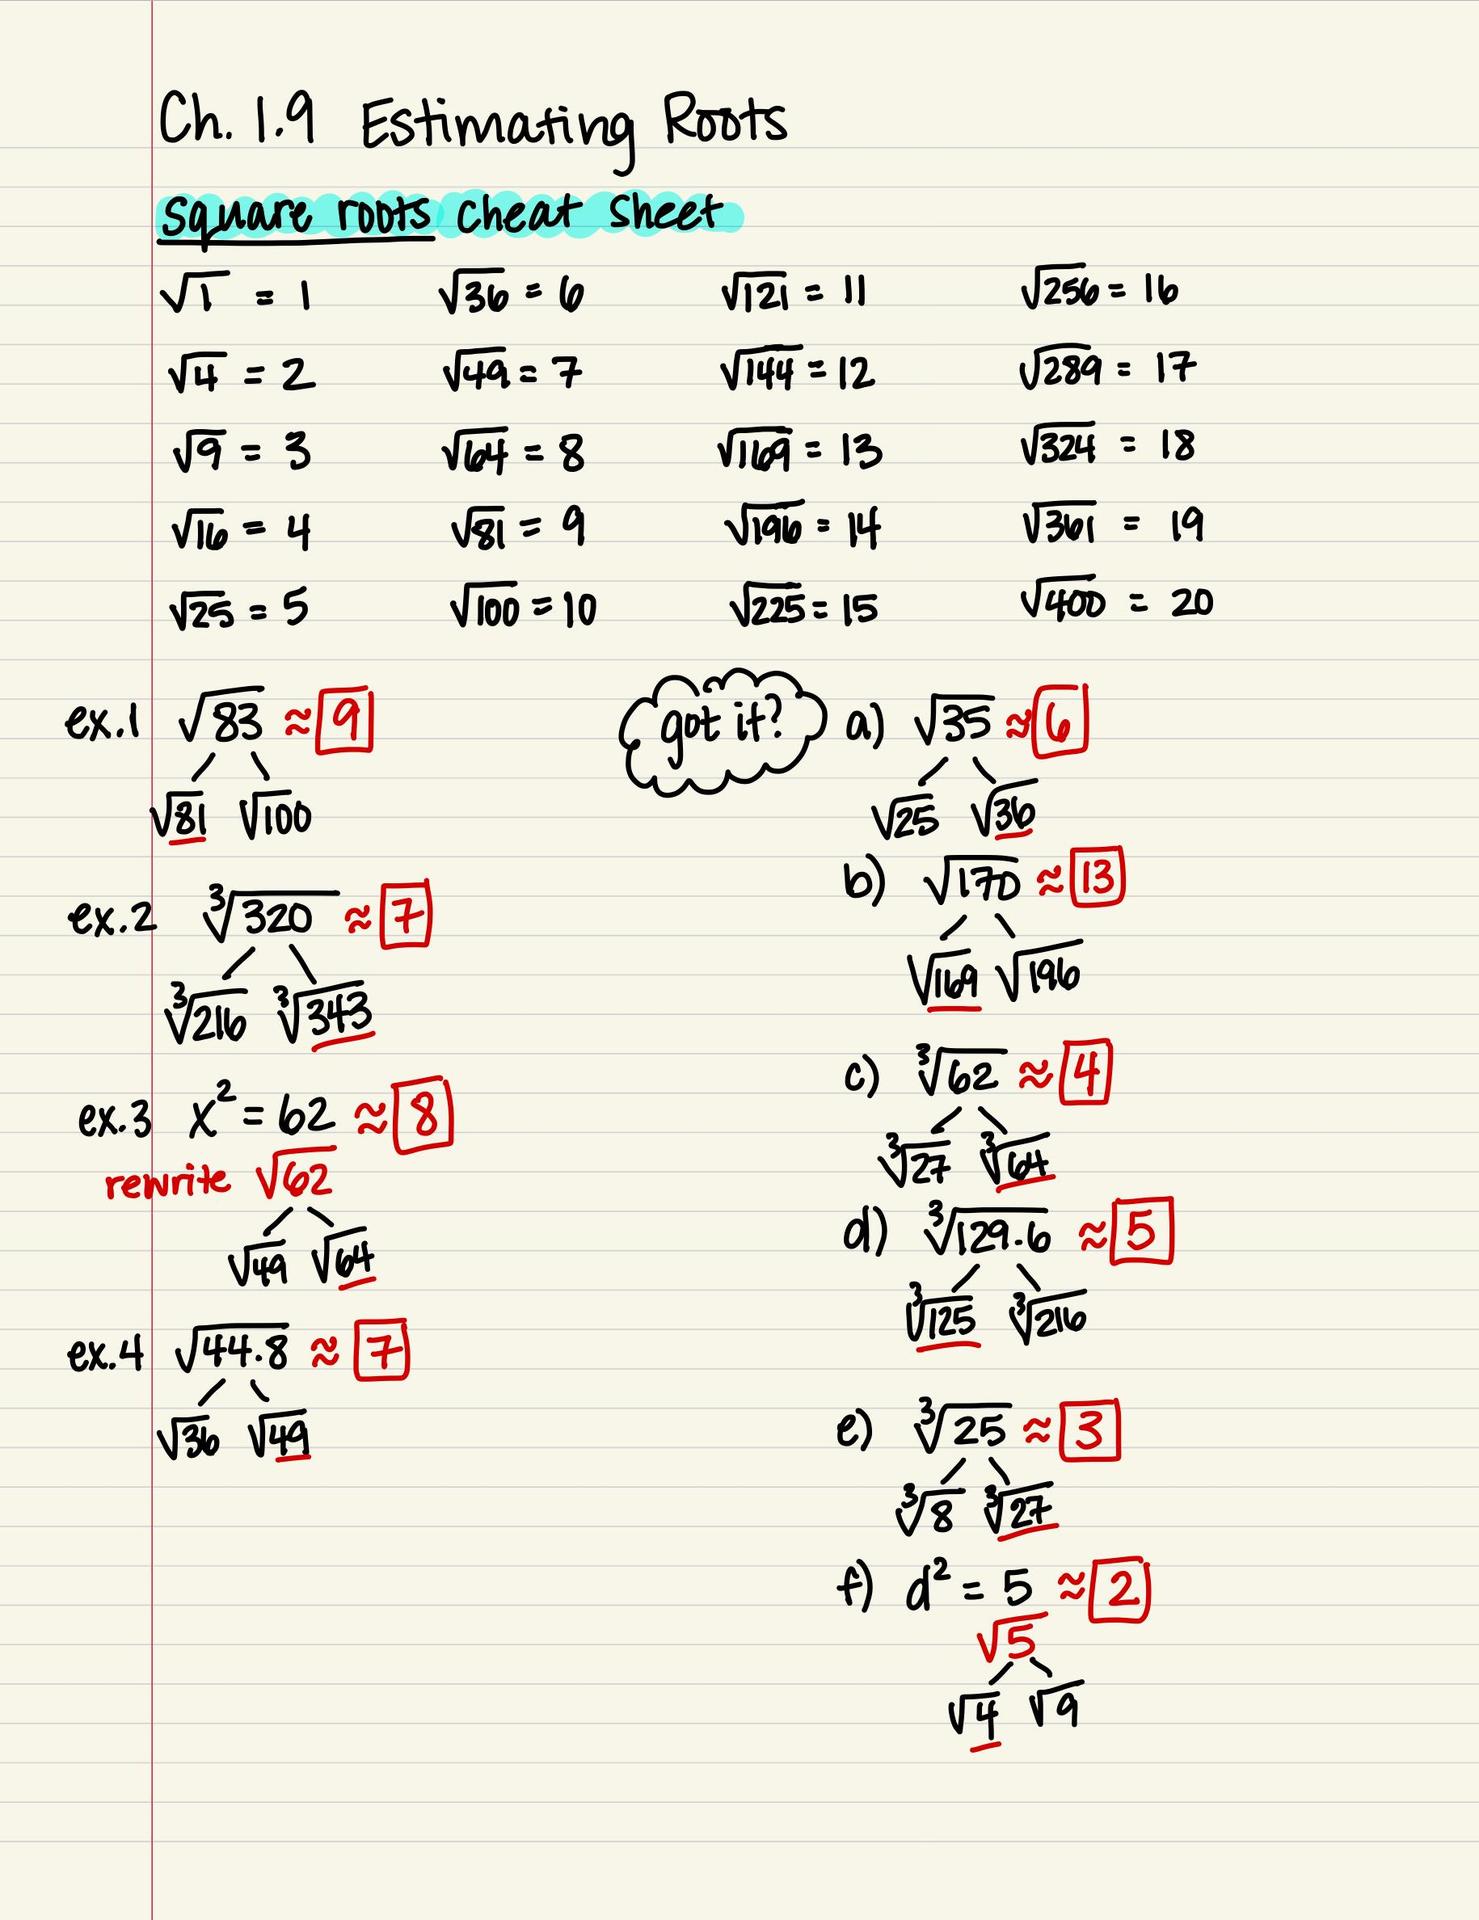 Ch. 1.9 Estimating Roots
Square roots cheat sheet
√1 = 1 √36 = 6 √121 = 11 √256 = 16
√4 = 2 √49 = 7 √144 = 12 √289 = 17
√9 = 3 √64 = 8 √169 = 13 √324 = 18
√16 = 4 √81 = 9 √196 = 14 √361 = 19
√25 = 5 √100 = 10 √225 = 15 √400 = 20
ex.1 √83 ≈ 9
√81 √100
ex.2 ³√320 ≈ 7
³√216 ³√343
ex.3 x² = 62 ≈ 8
rewrite √62
√49 √64
ex.4 √44.8 ≈ 7
√36 √49
got it?
a) √35 ≈ 6
√25 √36
b) √170 ≈ 13
√169 √196
c) ³√62 ≈ 4
³√27 ³√64
d) ³√129.6 ≈ 5
³√125 ³√216
e) ³√25 ≈ 3
³√8 ³√27
f) d² = 5 ≈ 2
√5
√4 √9